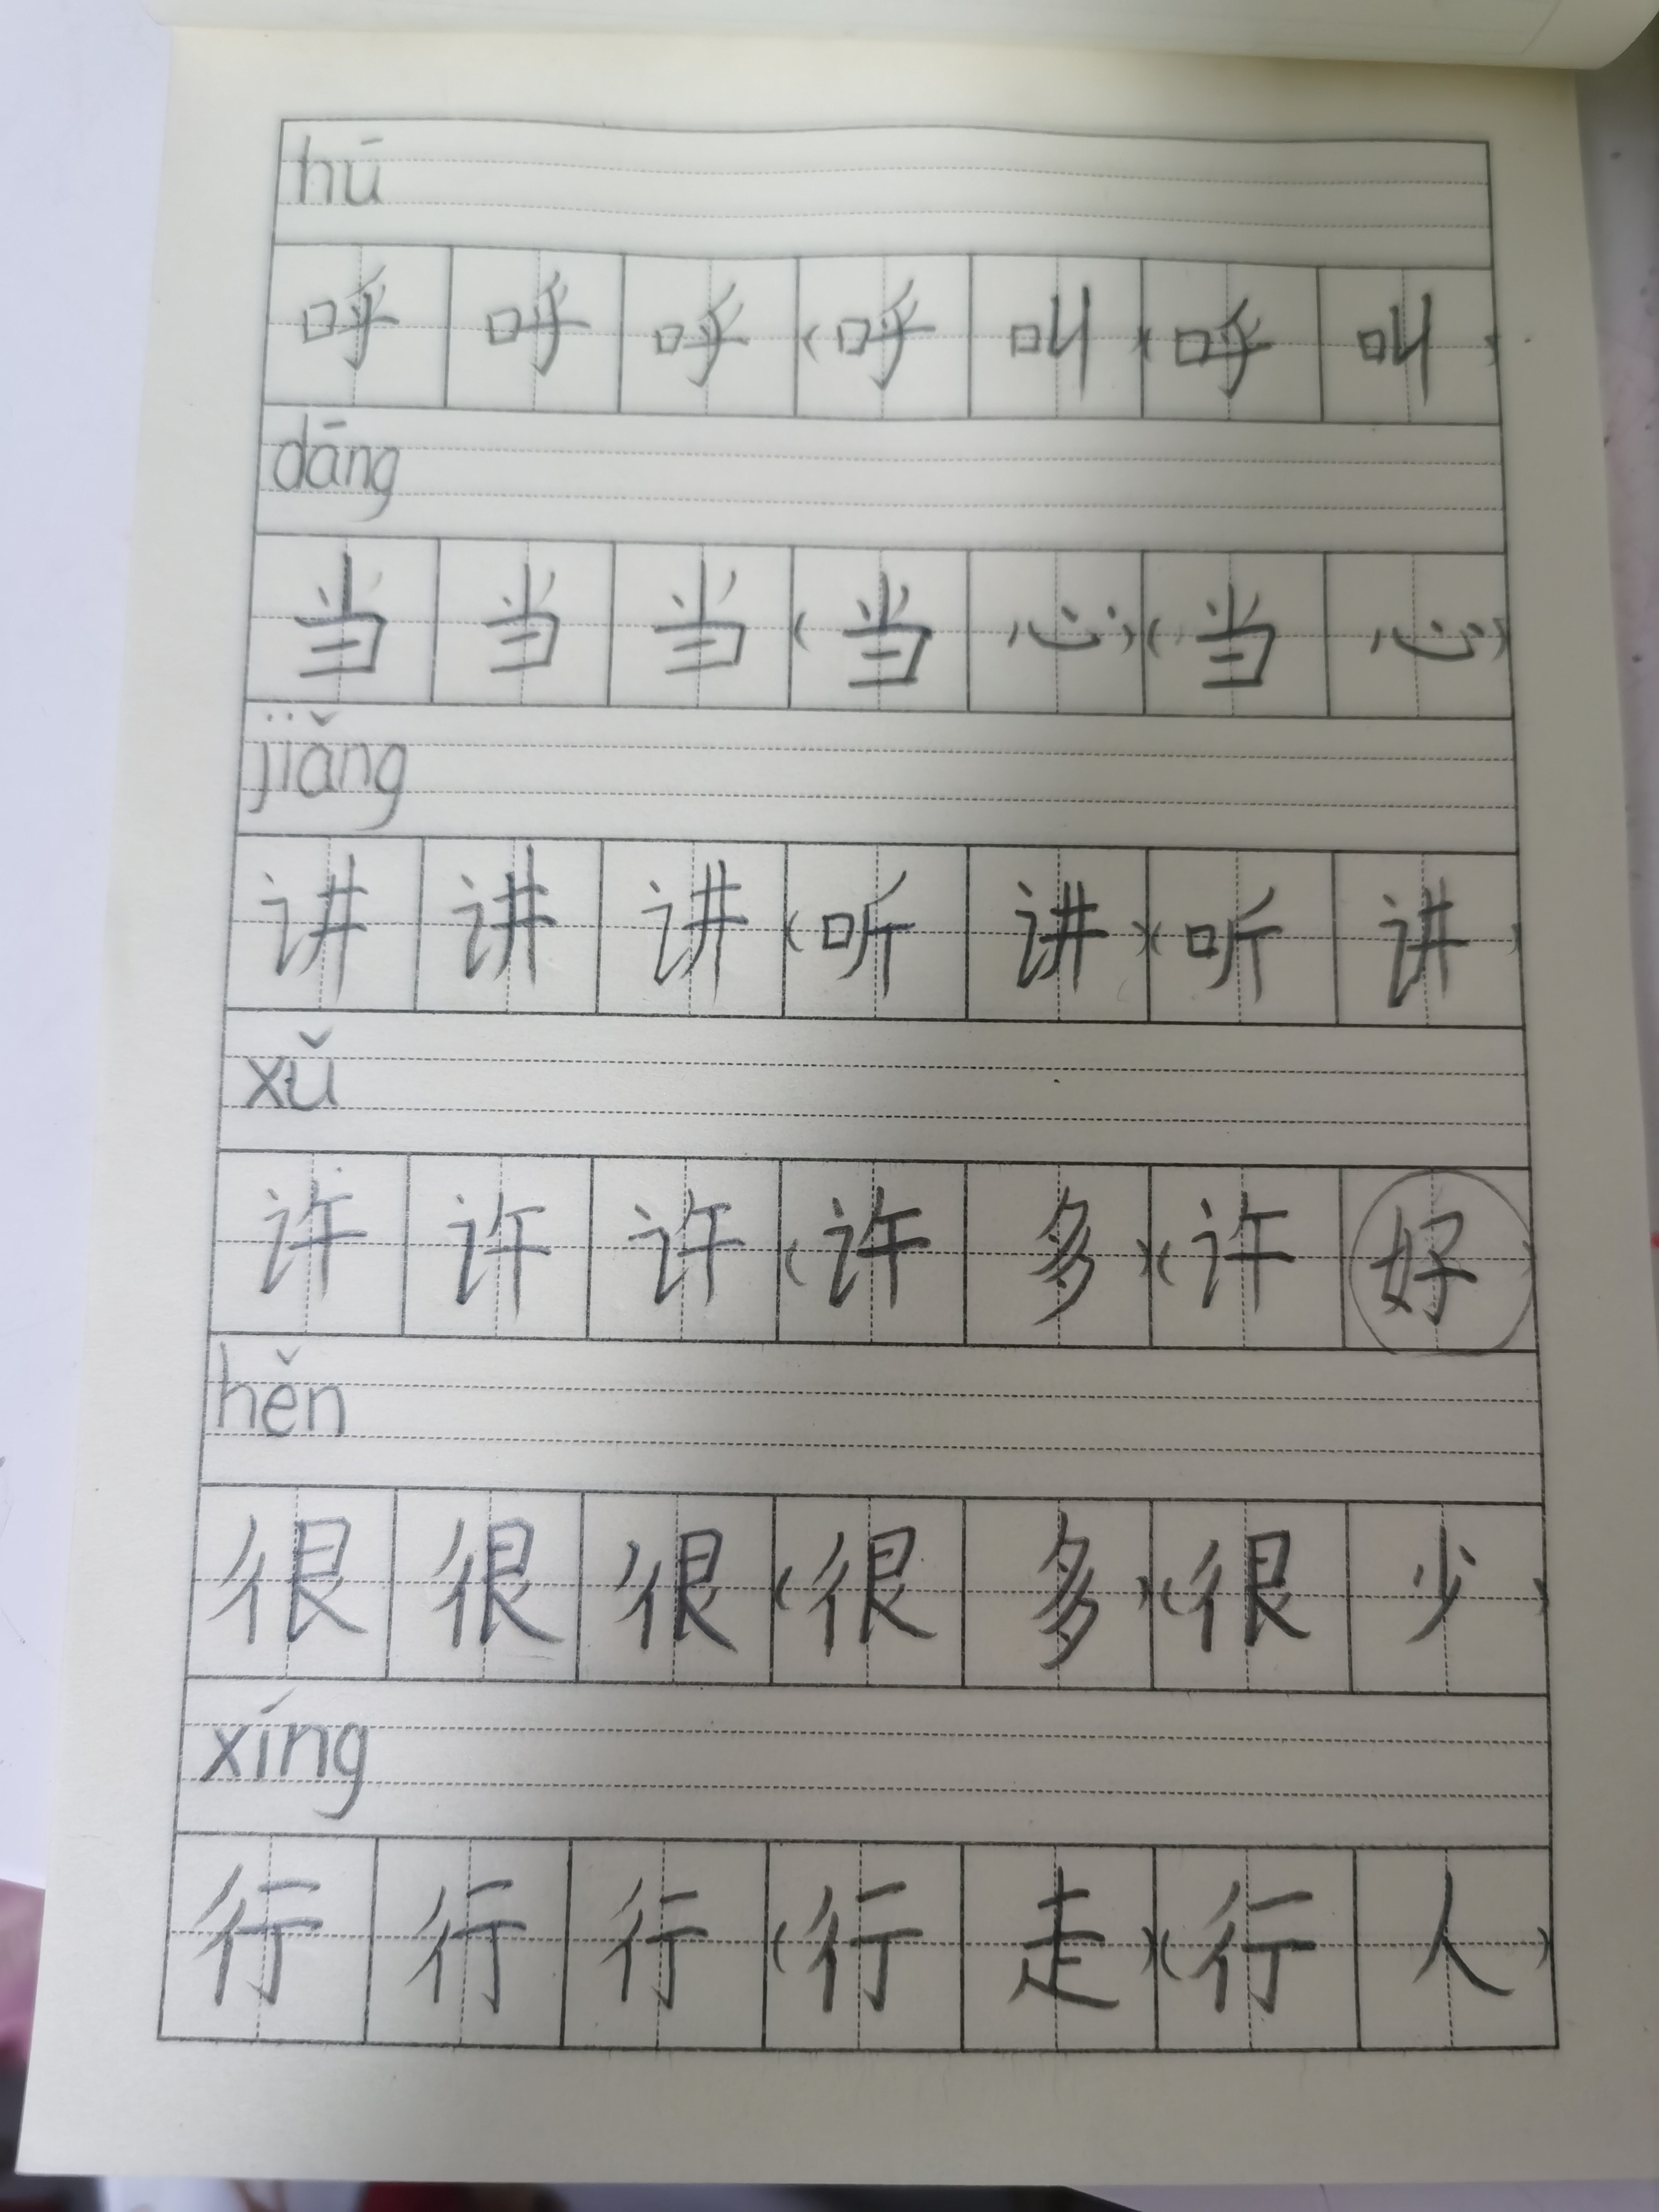 hū
呼呼呼(呼叫)(呼叫)
dāng
当当当(当心)(当心)
jiǎng
讲讲讲(听讲)(听讲)
xǔ
许许许(许多)(许好)
hěn
很很很(很多)(很少)
xíng
行行行(行走)(行人)